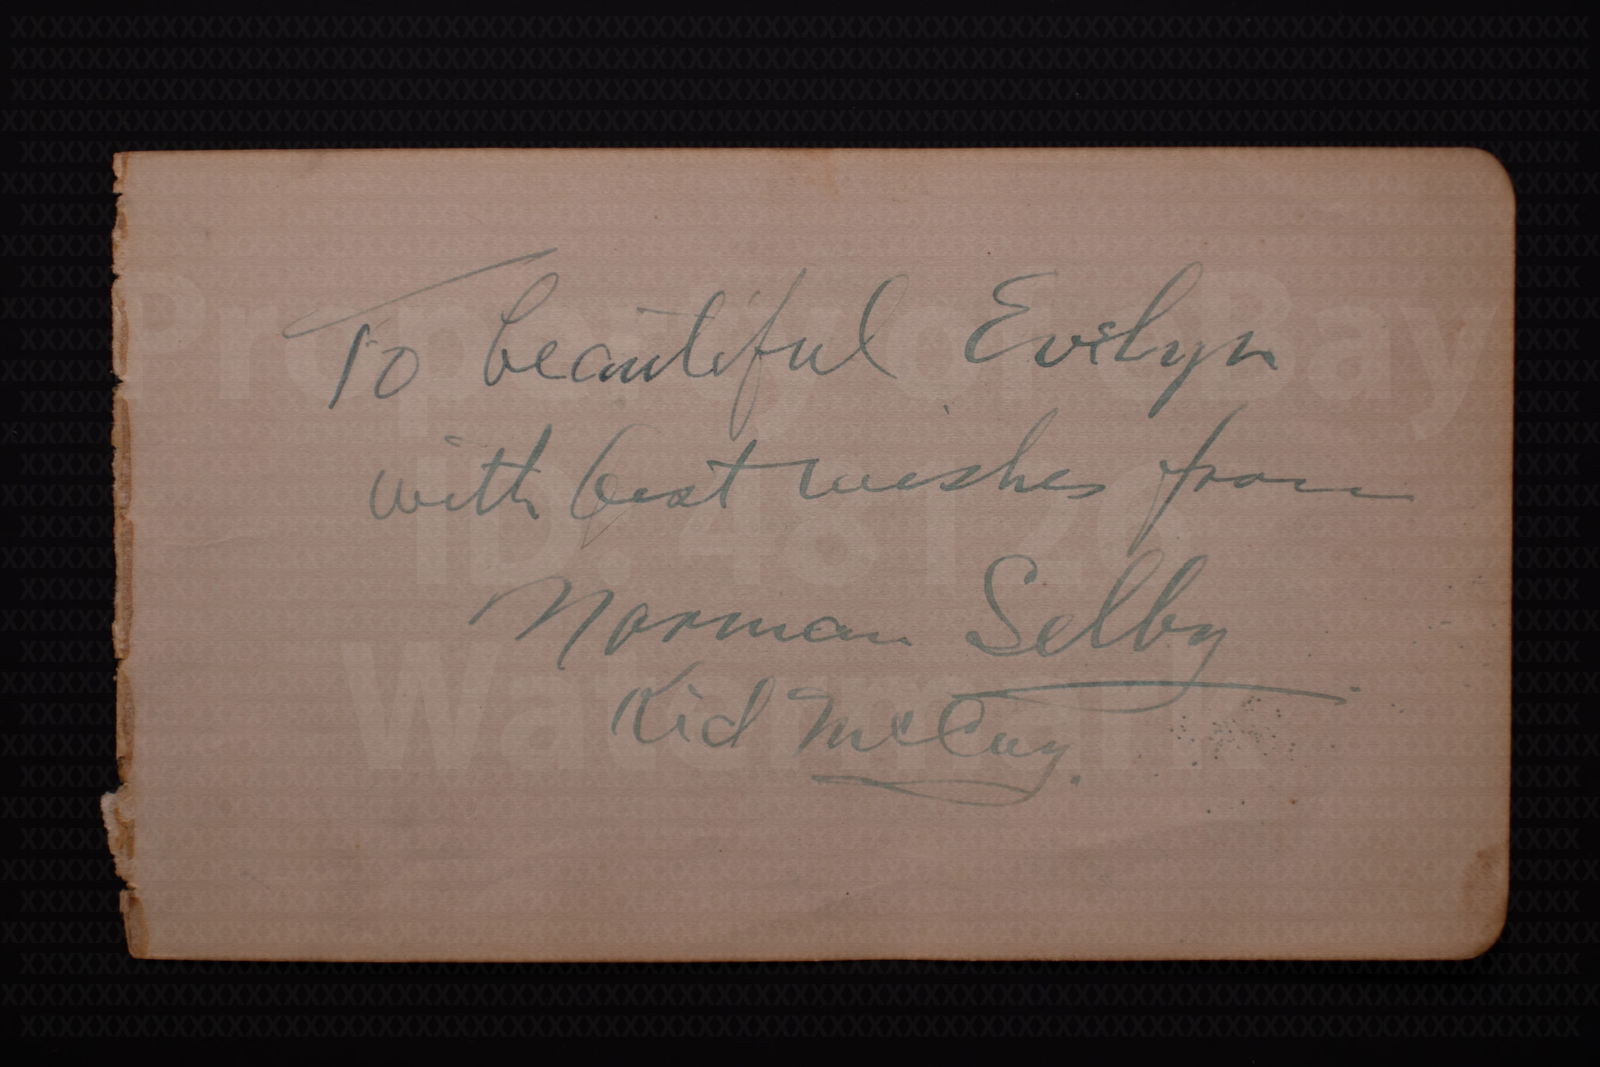 To beautiful Evelyn
with best wishes from
Norman Selby
Kid McCoy.
Property of eBay
ID: 48126
Watermark